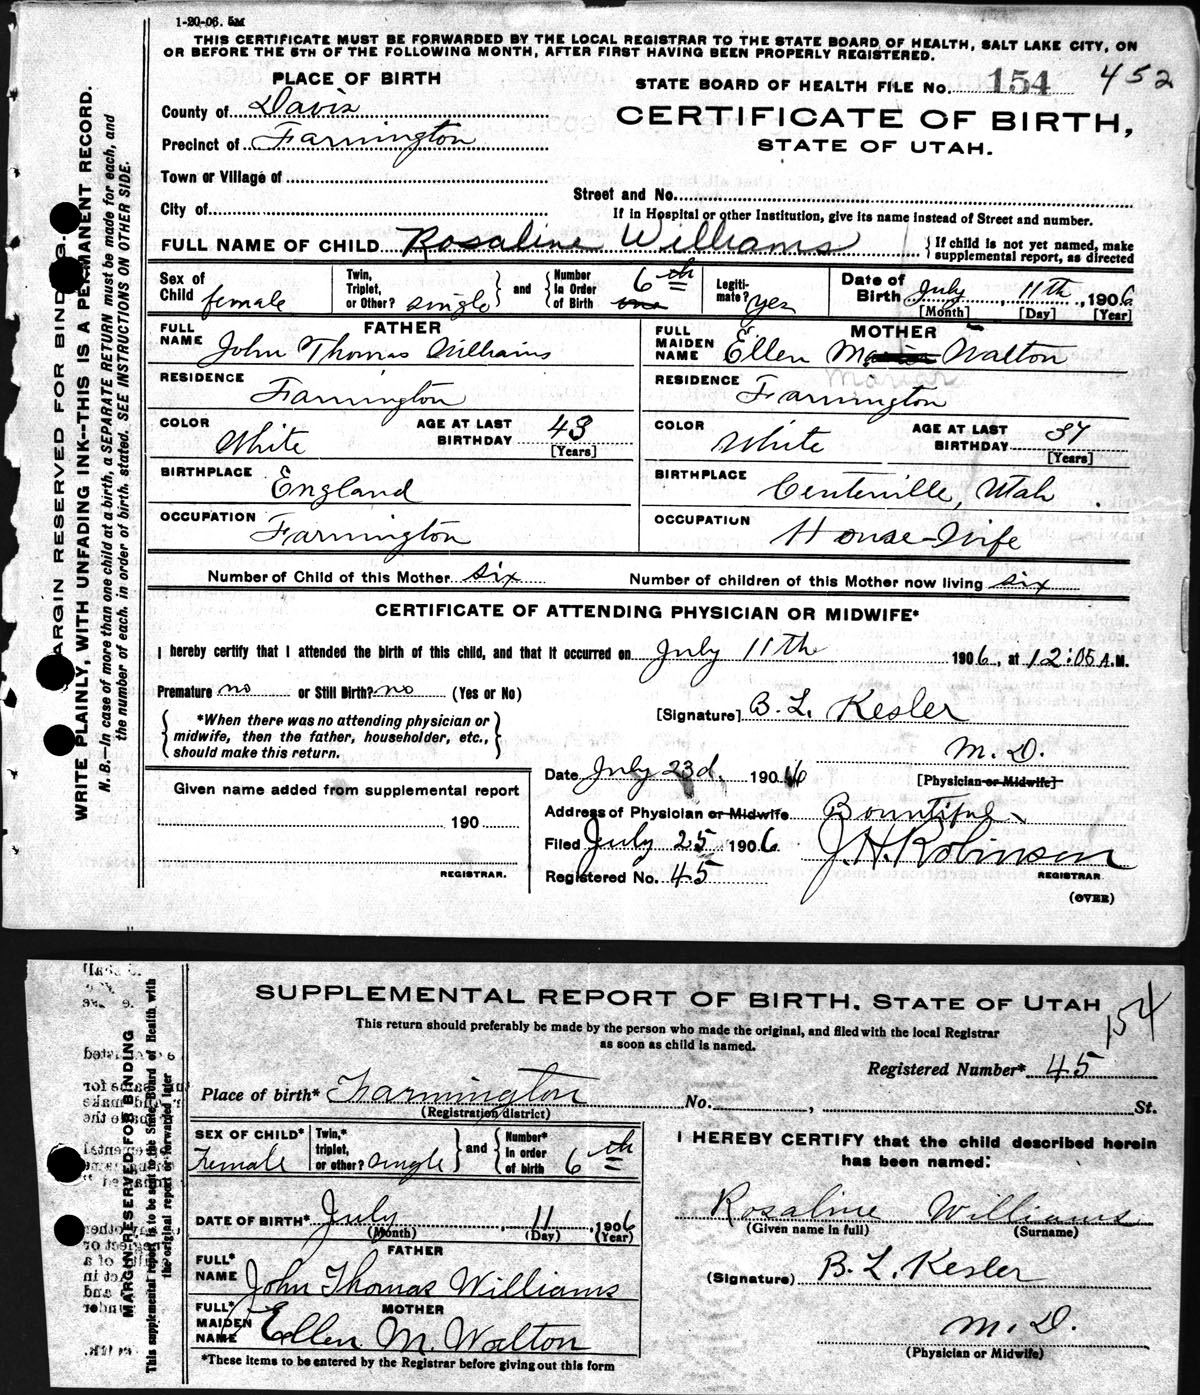 1-20-06. 5M
THIS CERTIFICATE MUST BE FORWARDED BY THE LOCAL REGISTRAR TO THE STATE BOARD OF HEALTH, SALT LAKE CITY, ON
OR BEFORE THE 5TH OF THE FOLLOWING MONTH, AFTER FIRST HAVING BEEN PROPERLY REGISTERED.
PLACE OF BIRTH
STATE BOARD OF HEALTH FILE No. 154 452
County of Davis
CERTIFICATE OF BIRTH,
Precinct of Farmington
STATE OF UTAH.
Town or Village of
Street and No.
City of
If in Hospital or other Institution, give its name instead of Street and number.
FULL NAME OF CHILD Rosaline Williams { If child is not yet named, make supplemental report, as directed
Sex of Child female
Twin, Triplet, or Other? single } and { Number in Order of Birth one 6th
Legiti- mate? yes
Date of Birth July, 11th, 1906
[Month] [Day] [Year]
FATHER
FULL NAME John Thomas Williams
MOTHER
FULL MAIDEN NAME Ellen Marian Walton
Marian
RESIDENCE Farmington
RESIDENCE Farmington
COLOR White AGE AT LAST BIRTHDAY 43 [Years]
COLOR White AGE AT LAST BIRTHDAY 37 [Years]
BIRTHPLACE England
BIRTHPLACE Centerville, Utah.
OCCUPATION Farmington
OCCUPATION House-Wife
Number of Child of this Mother six Number of children of this Mother now living six
CERTIFICATE OF ATTENDING PHYSICIAN OR MIDWIFE*
I hereby certify that I attended the birth of this child, and that it occurred on July 11th 1906, at 12:05 A.M.
Premature? no or Still Birth? no (Yes or No)
[Signature] B. L. Kesler
M. D.
[Physician or Midwife]
{ *When there was no attending physician or
midwife, then the father, householder, etc.,
should make this return. }
Date July 23d. 1906
Given name added from supplemental report
190
REGISTRAR.
Address of Physician or Midwife Bountiful
Filed July 25 1906 J. H. Robinson
REGISTRAR
Registered No. 45
(OVER)
MARGIN RESERVED FOR BINDING.
WRITE PLAINLY, WITH UNFADING INK--THIS IS A PERMANENT RECORD.
N. B.--In case of more than one child at a birth, a SEPARATE RETURN must be made for each, and
the number of each, in order of birth, stated. SEE INSTRUCTIONS ON OTHER SIDE.
SUPPLEMENTAL REPORT OF BIRTH, STATE OF UTAH 154
This return should preferably be made by the person who made the original, and filed with the local Registrar
as soon as child is named.
Registered Number* 45
Place of birth* Farmington No. , St.
(Registration district)
SEX OF CHILD* Female
Twin,* triplet, or other? single } and { Number* in order of birth 6th
I HEREBY CERTIFY that the child described herein
has been named:
DATE OF BIRTH* July, 11, 1906
(Month) (Day) (Year)
Rosaline Williams
(Given name in full) (Surname)
FATHER
FULL* NAME John Thomas Williams
(Signature) B. L. Kesler
MOTHER
FULL* MAIDEN NAME Ellen M. Walton
M. D.
(Physician or Midwife)
*These items to be entered by the Registrar before giving out this form
MARGIN RESERVED FOR BINDING
This supplemental report is to be sent to the State Board of Health with
the original report or forwarded later